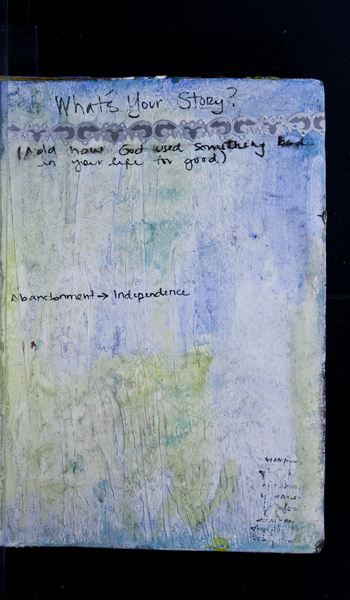 What's Your Story?
(Add how God used something bad
in your life for good)
Abandonment → Independence